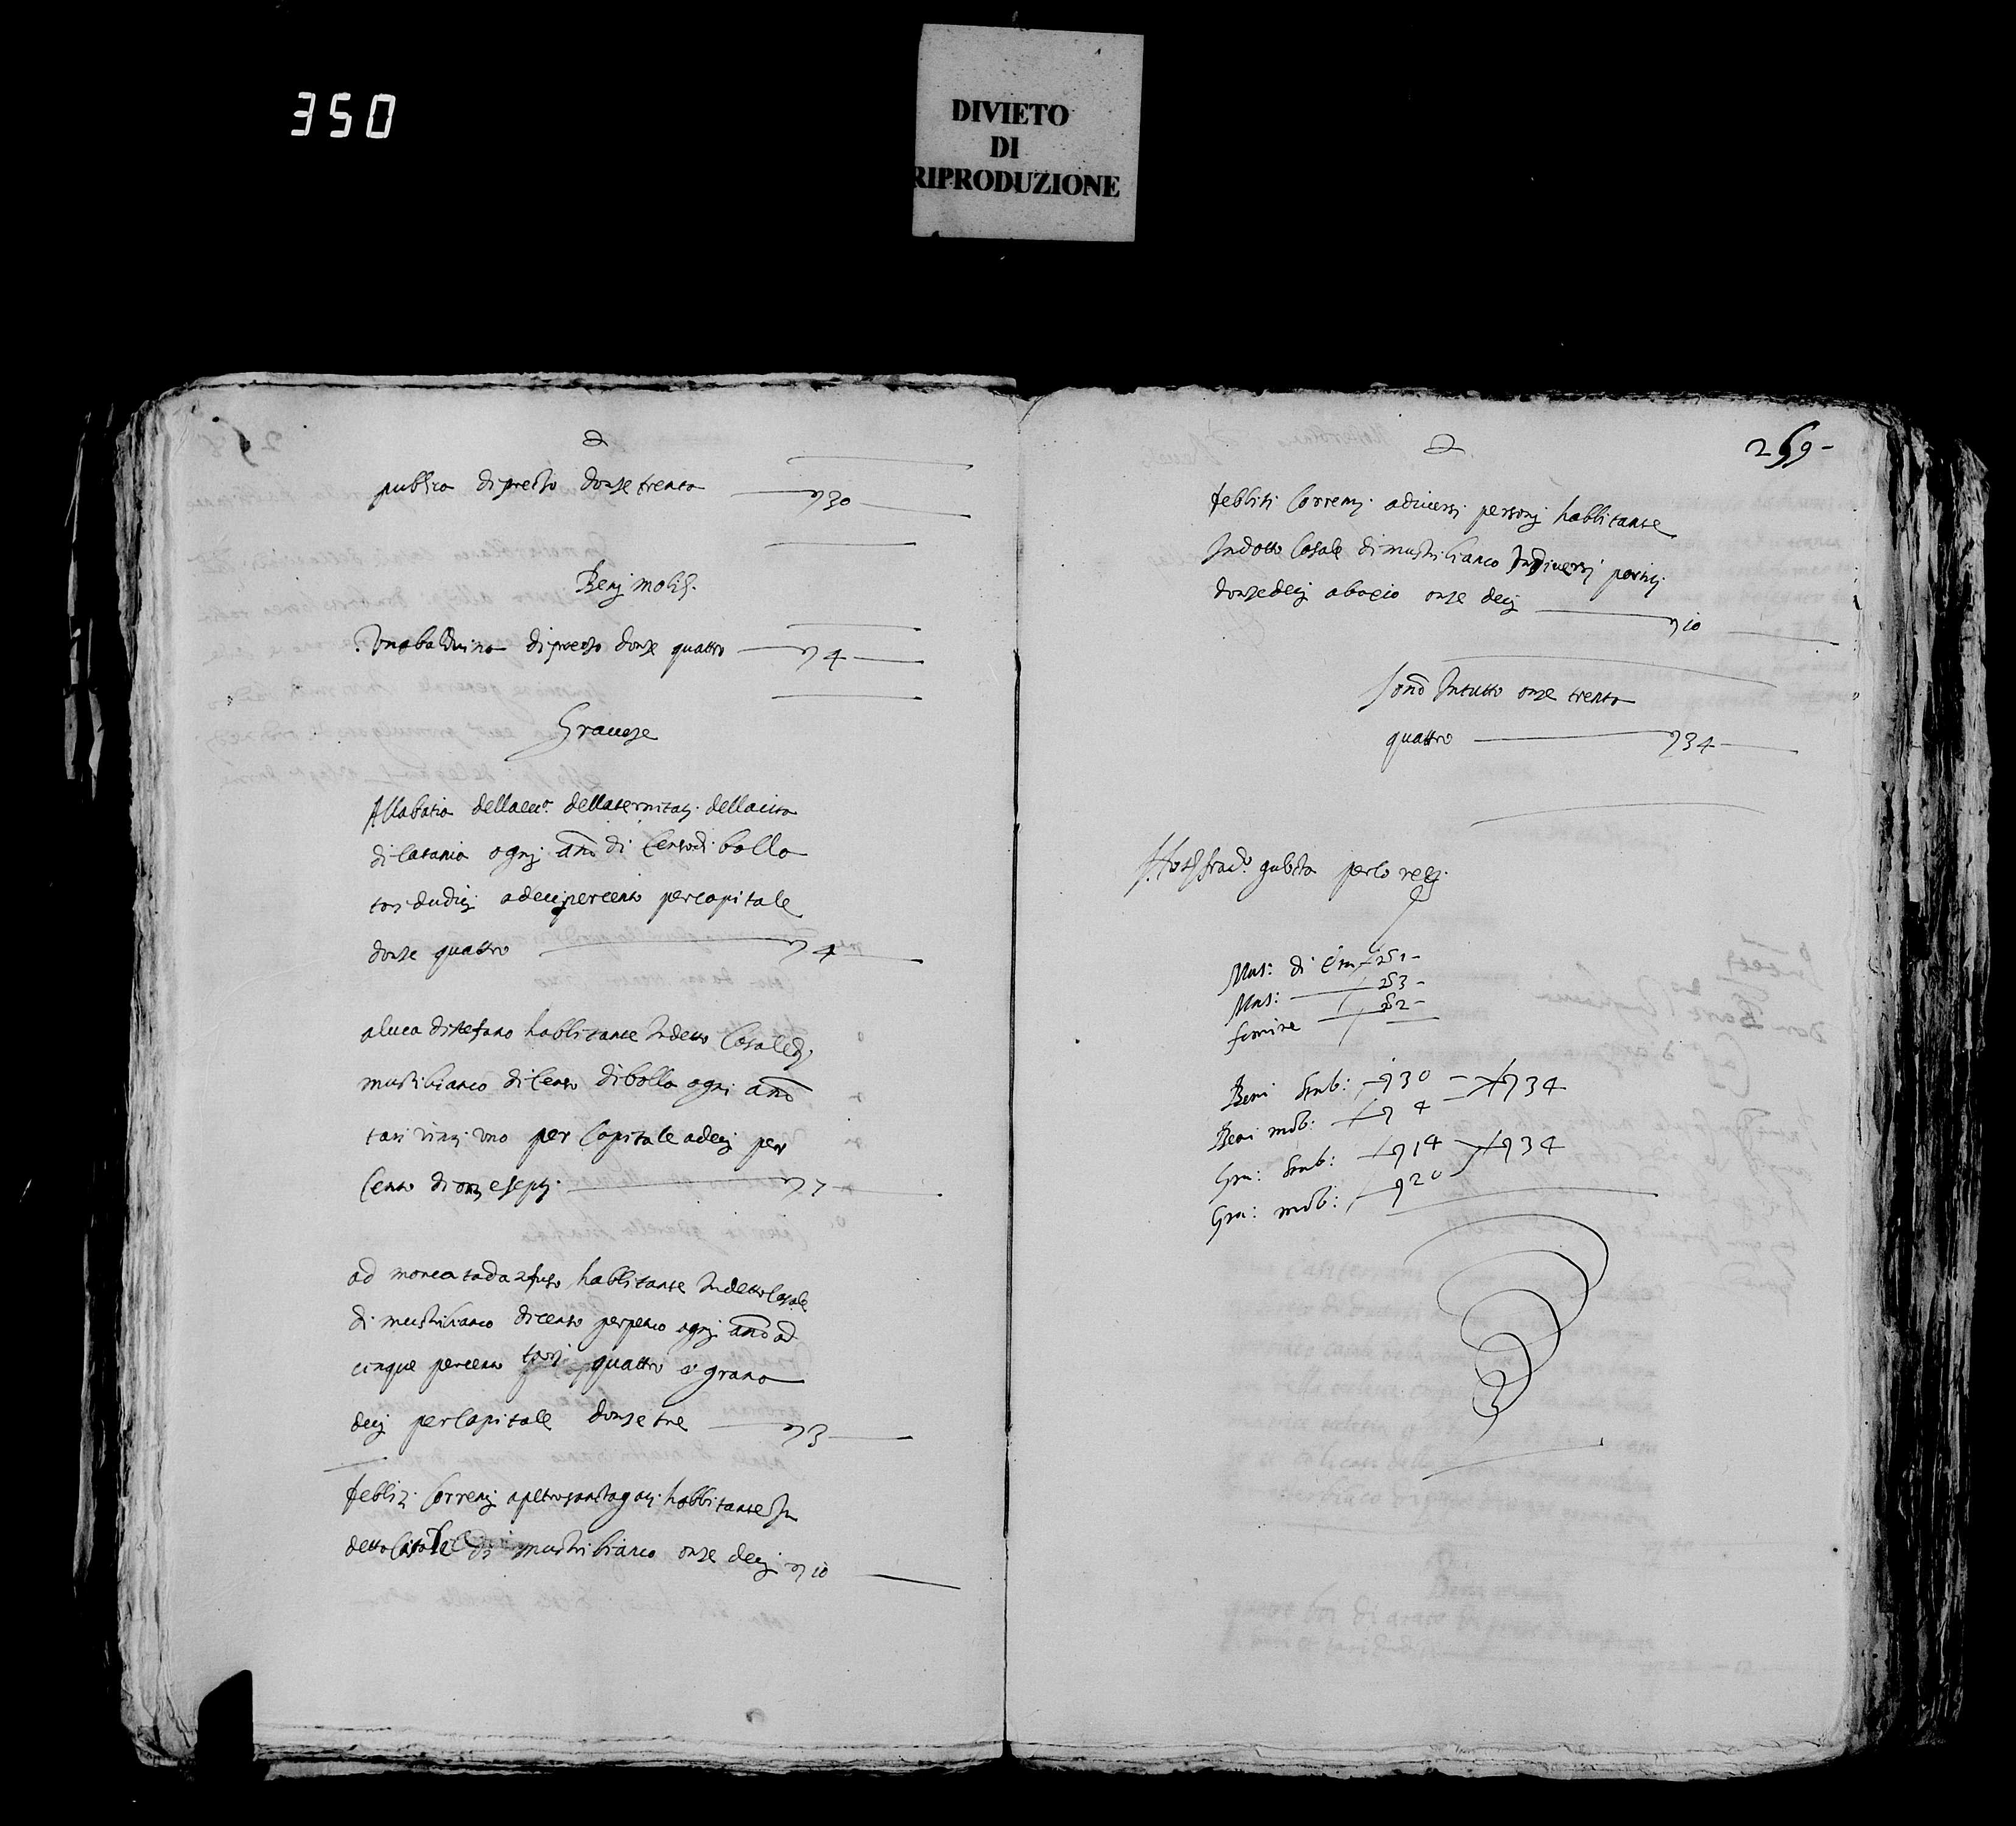 350
DIVIETO
DI
RIPRODUZIONE
publica di prezzo donze trenta 30
Benj mobilj
Una balduina di prezzo donze quattro 4
Graveze
Alla batia della della ternitatj della cita
di Catania ognj anno di censo di bolla
tarj dudicj a decj per cento per capitale
donze quattro 4
a luca distefano habbitante In detto Casale di
mustribianco di censo di bolla ogni anno
tari vinti uno per Capitale a decj per
Cento di onze septj 7
ad habbitante In detto Casale
di mustribianco di censo perpetuo ognj anno ad
cinque per cento tarj quattro e grana
decj per Capitale donze tre 3
debbiti Correntj a petro habbitante In
detto Casale di mustribianco onze decj 10
259-
debbiti Correntj a diversi personj habbitante
In detto Casale di mustribianco In diversi partitj
donze decj onze decj 10
sono In tutto onze trenta
quattro 34
gubita per lo
Mas: di
Mas: 253 -
femine 252 -
Beni stab: 30 - 34
Beni mob: 4
Gra: stab: 14 34
Gra: mob: 20